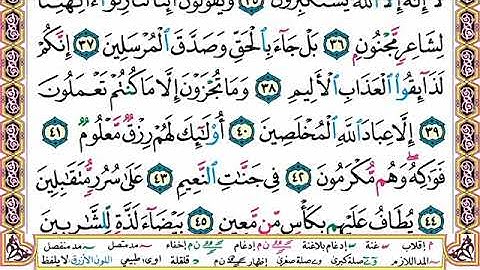 لَا إِلَٰهَ إِلَّا ٱللَّهُ يَسْتَكْبِرُونَ ٣٥ وَيَقُولُونَ أَئِنَّا لَتَارِكُوٓا۟ ءَالِهَتِنَا
لِشَاعِرٍ مَّجْنُونٍۭ ٣٦ بَلْ جَآءَ بِٱلْحَقِّ وَصَدَّقَ ٱلْمُرْسَلِينَ ٣٧ إِنَّكُمْ
لَذَآئِقُوا۟ ٱلْعَذَابِ ٱلْأَلِيمِ ٣٨ وَمَا تُجْزَوْنَ إِلَّا مَا كُنتُمْ تَعْمَلُونَ
٣٩ إِلَّا عِبَادَ ٱللَّهِ ٱلْمُخْلَصِينَ ٤٠ أُو۟لَٰٓئِكَ لَهُمْ رِزْقٌ مَّعْلُومٌ ٤١
فَوَٰكِهُ ۖ وَهُم مُّكْرَمُونَ ٤٢ فِى جَنَّٰتِ ٱلنَّعِيمِ ٤٣ عَلَىٰ سُرُرٍ مُّتَقَٰبِلِينَ
٤٤ يُطَافُ عَلَيْهِم بِكَأْسٍ مِّن مَّعِينٍۭ ٤٥ بَيْضَآءَ لَذَّةٍ لِّلشَّٰرِبِينَ
م إقلاب ـ غنة ـ إدغام بلاغنة ـ إدغام ـ إخفاء ـ مد متصل ـ مد منفصل
ـ المد اللازم ـ صلة كبرى ـ صلة صغرى ـ إظهار ـ قلقلة ـ اوى: طبيعي ـ اللون الأزرق: لا يلفظ